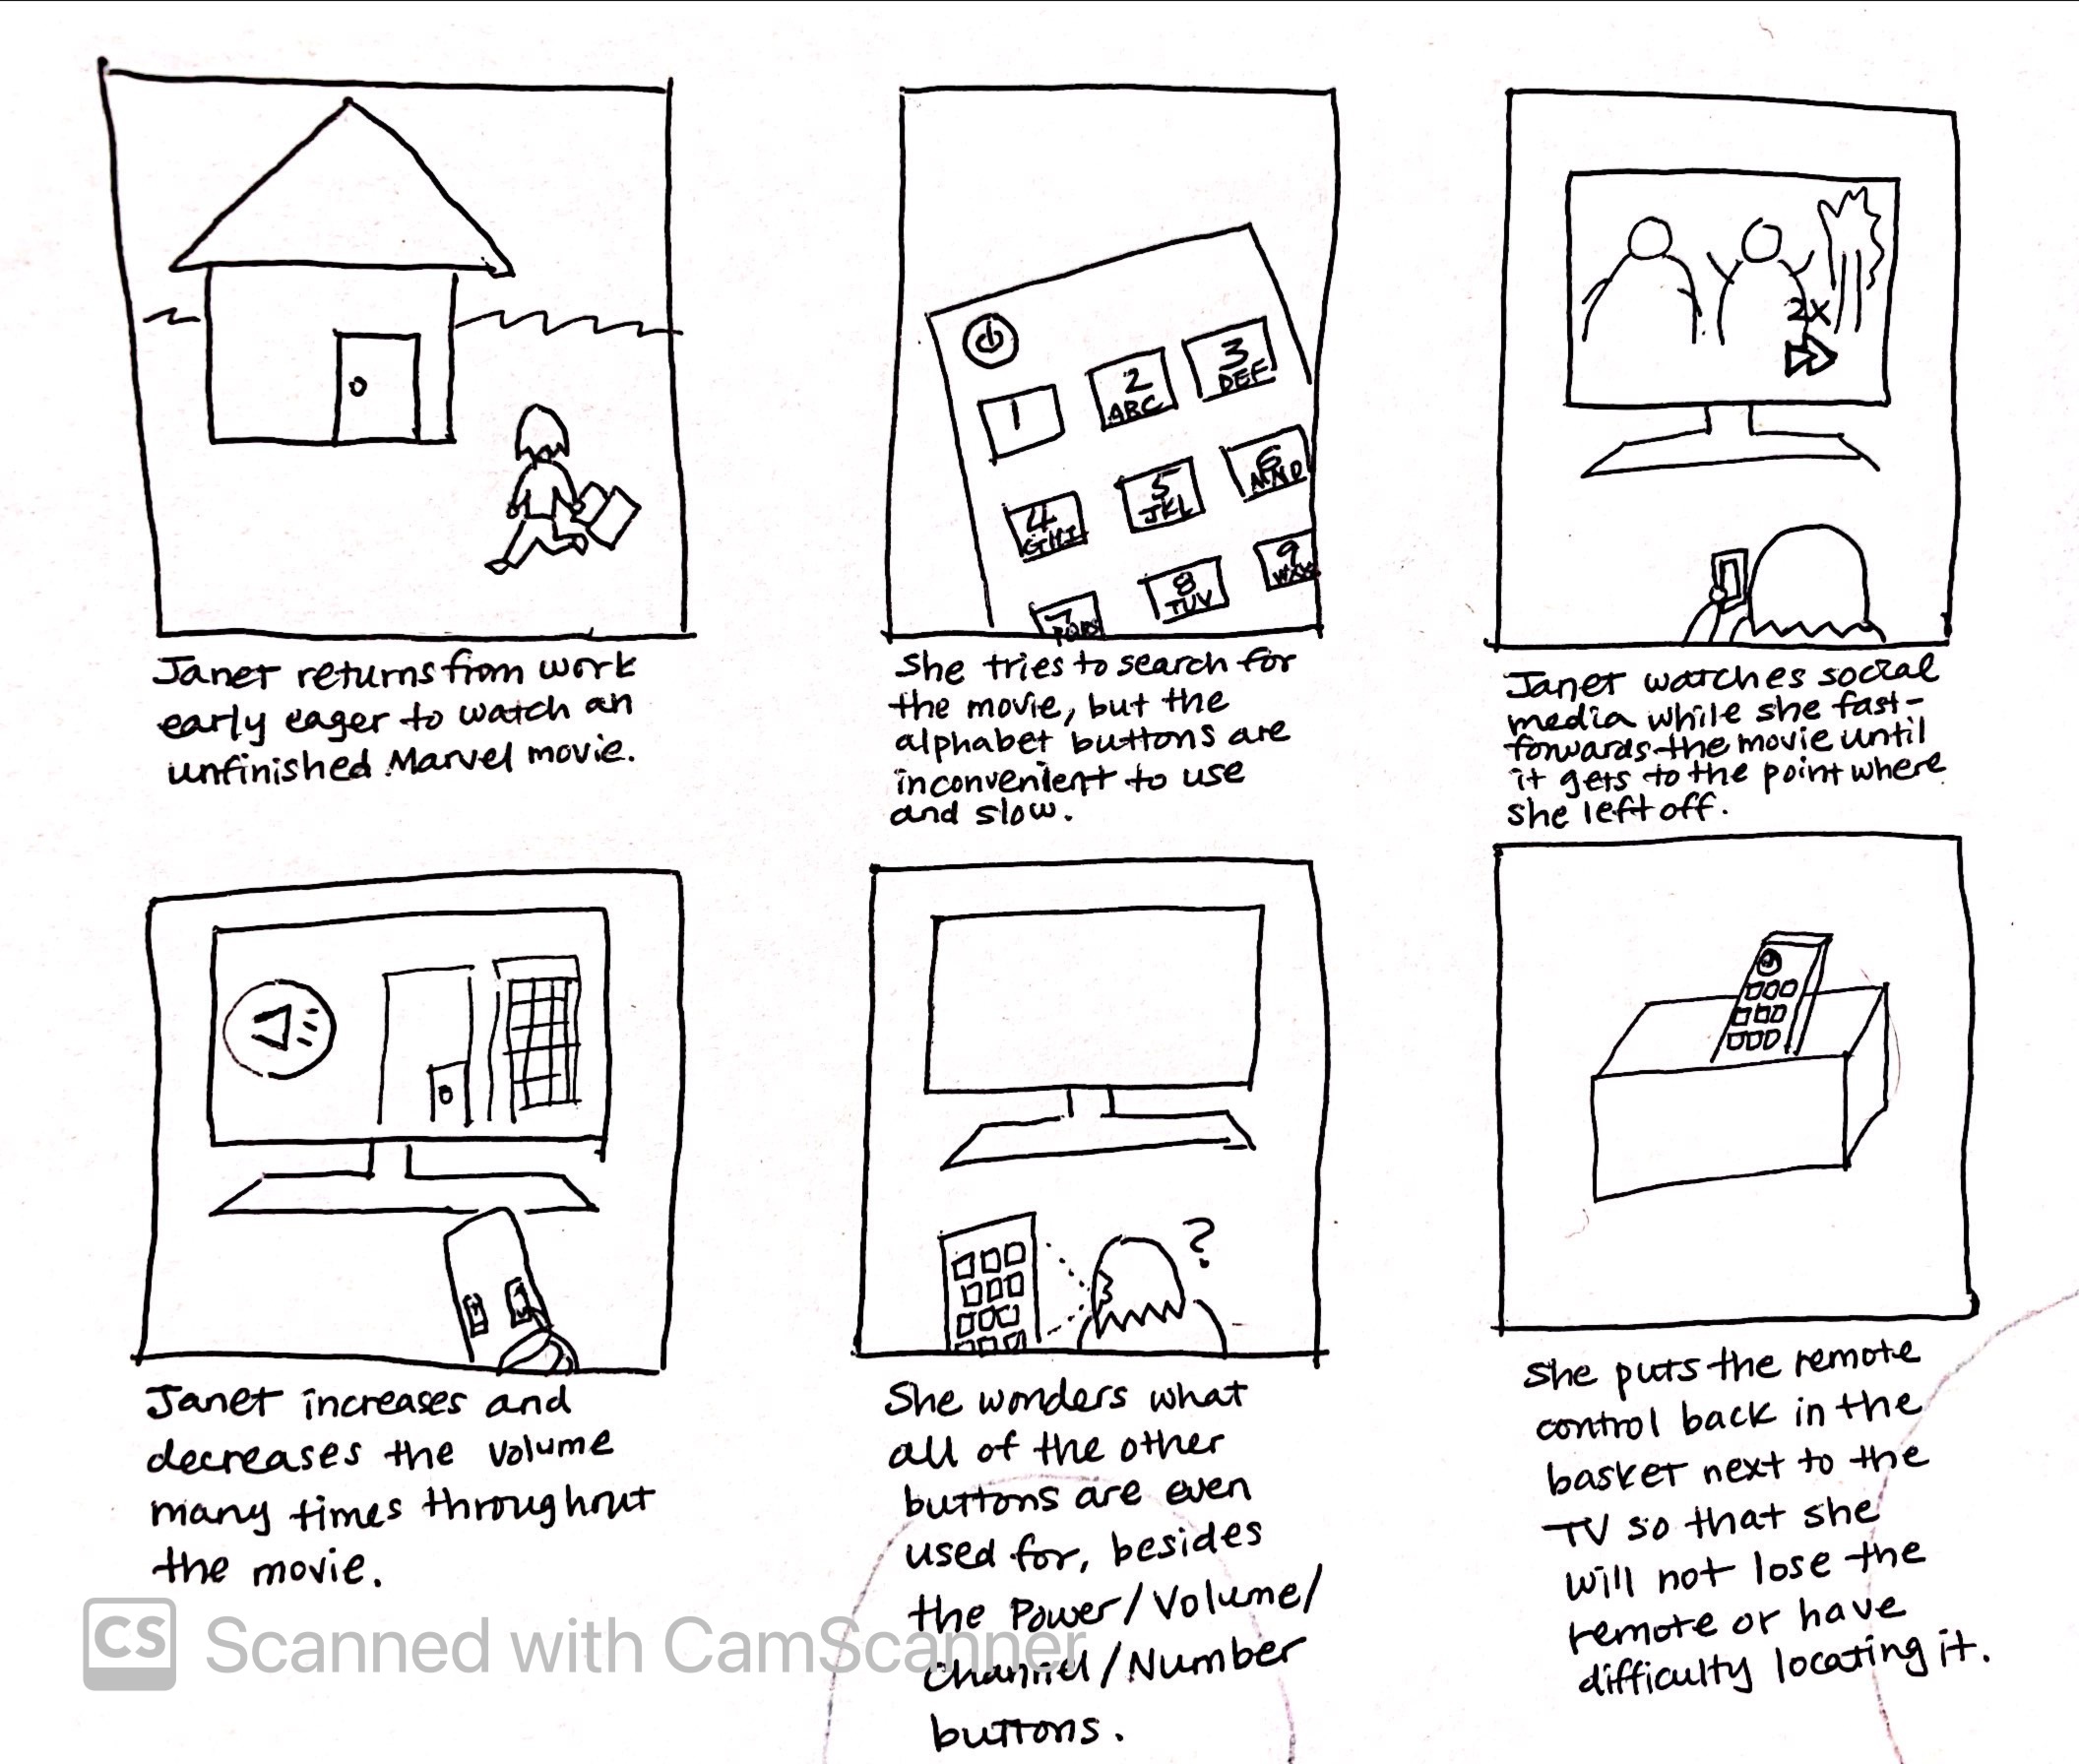 1
2
ABC
3
DEF
4
GHI
5
JKL
6
MNO
7
PQRS
8
TUV
9
2x
Janet returns from work
early eager to watch an
unfinished Marvel movie.
She tries to search for
the movie, but the
alphabet buttons are
inconvenient to use
and slow.
Janet watches social
media while she fast-
forwards the movie until
it gets to the point where
she left off.
?
Janet increases and
decreases the volume
many times throughout
the movie.
She wonders what
all of the other
buttons are even
used for, besides
the Power/Volume/
Channel/Number
buttons.
She puts the remote
control back in the
basket next to the
TV so that she
will not lose the
remote or have
difficulty locating it.
CS Scanned with CamScanner